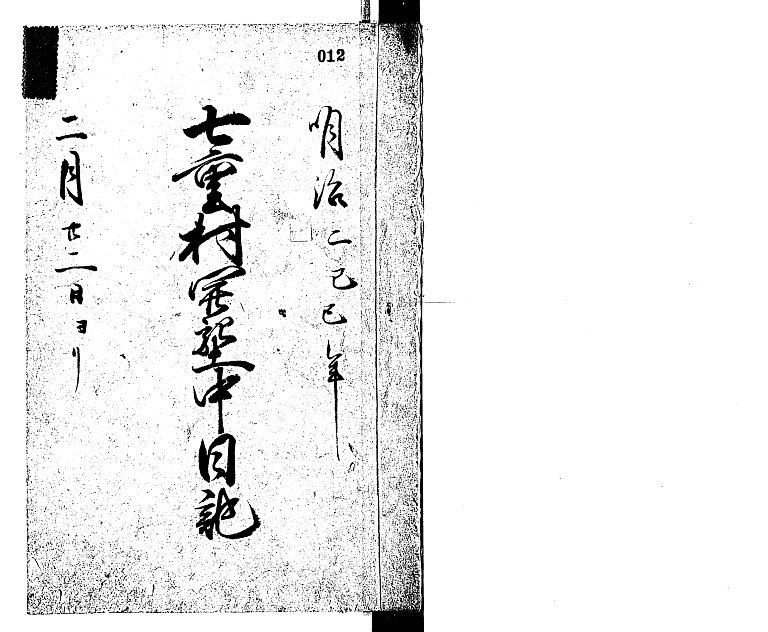 012
明治二己巳年
七重村開墾中日記
二月廿二日ヨリ